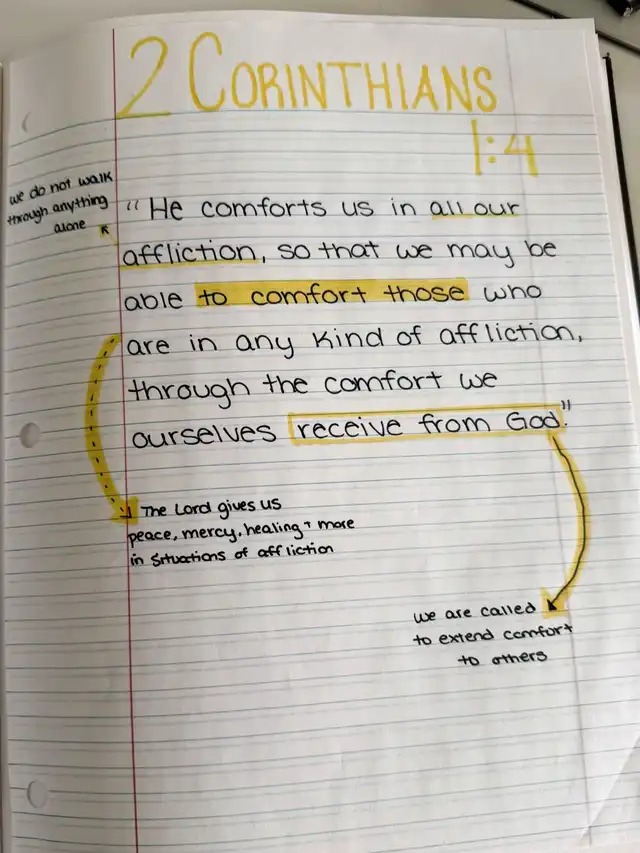 2 CORINTHIANS
1:4
we do not walk
through anything
alone
"He comforts us in all our
affliction, so that we may be
able to comfort those who
are in any kind of affliction,
through the comfort we
ourselves receive from God."
The Lord gives us
peace, mercy, healing + more
in situations of affliction
we are called
to extend comfort
to others